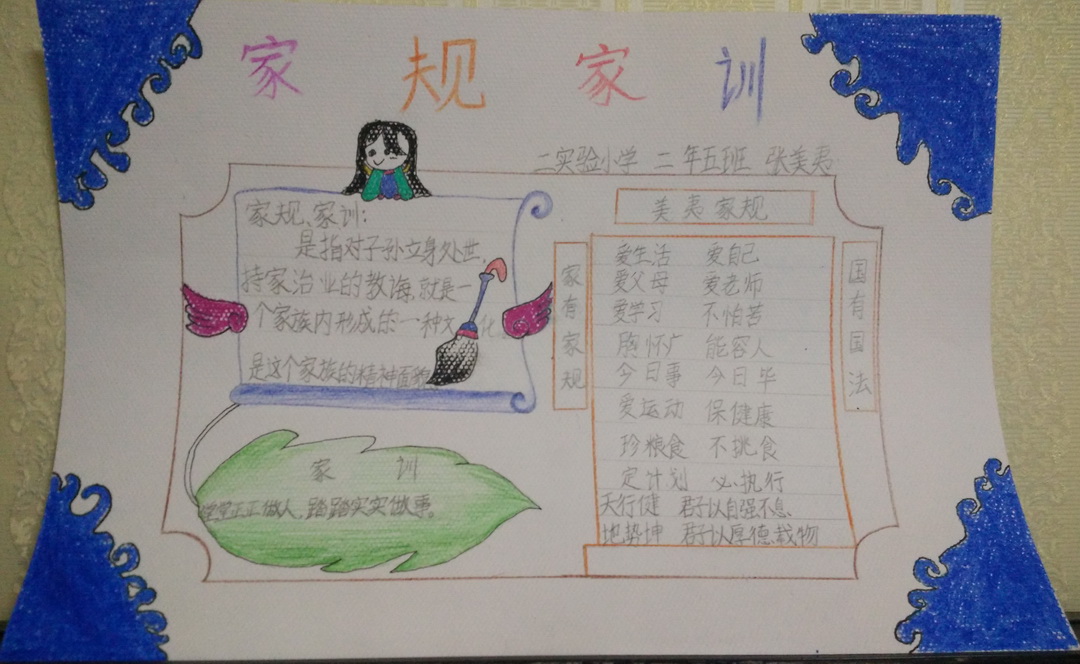 家规家训
二实验小学 二年五班 张美夷
家规、家训:
是指对子孙立身处世,
持家治业的教诲,就是一
个家族内形成的一种文化
是这个家族的精神面貌
家训
堂堂正正做人,踏踏实实做事。
美夷家规
家有家规
爱生活 爱自己
爱父母 爱老师
爱学习 不怕苦
胸怀广 能容人
今日事 今日毕
爱运动 保健康
珍粮食 不挑食
定计划 必执行
天行健 君子以自强不息
地势坤 君子以厚德载物
国有国法